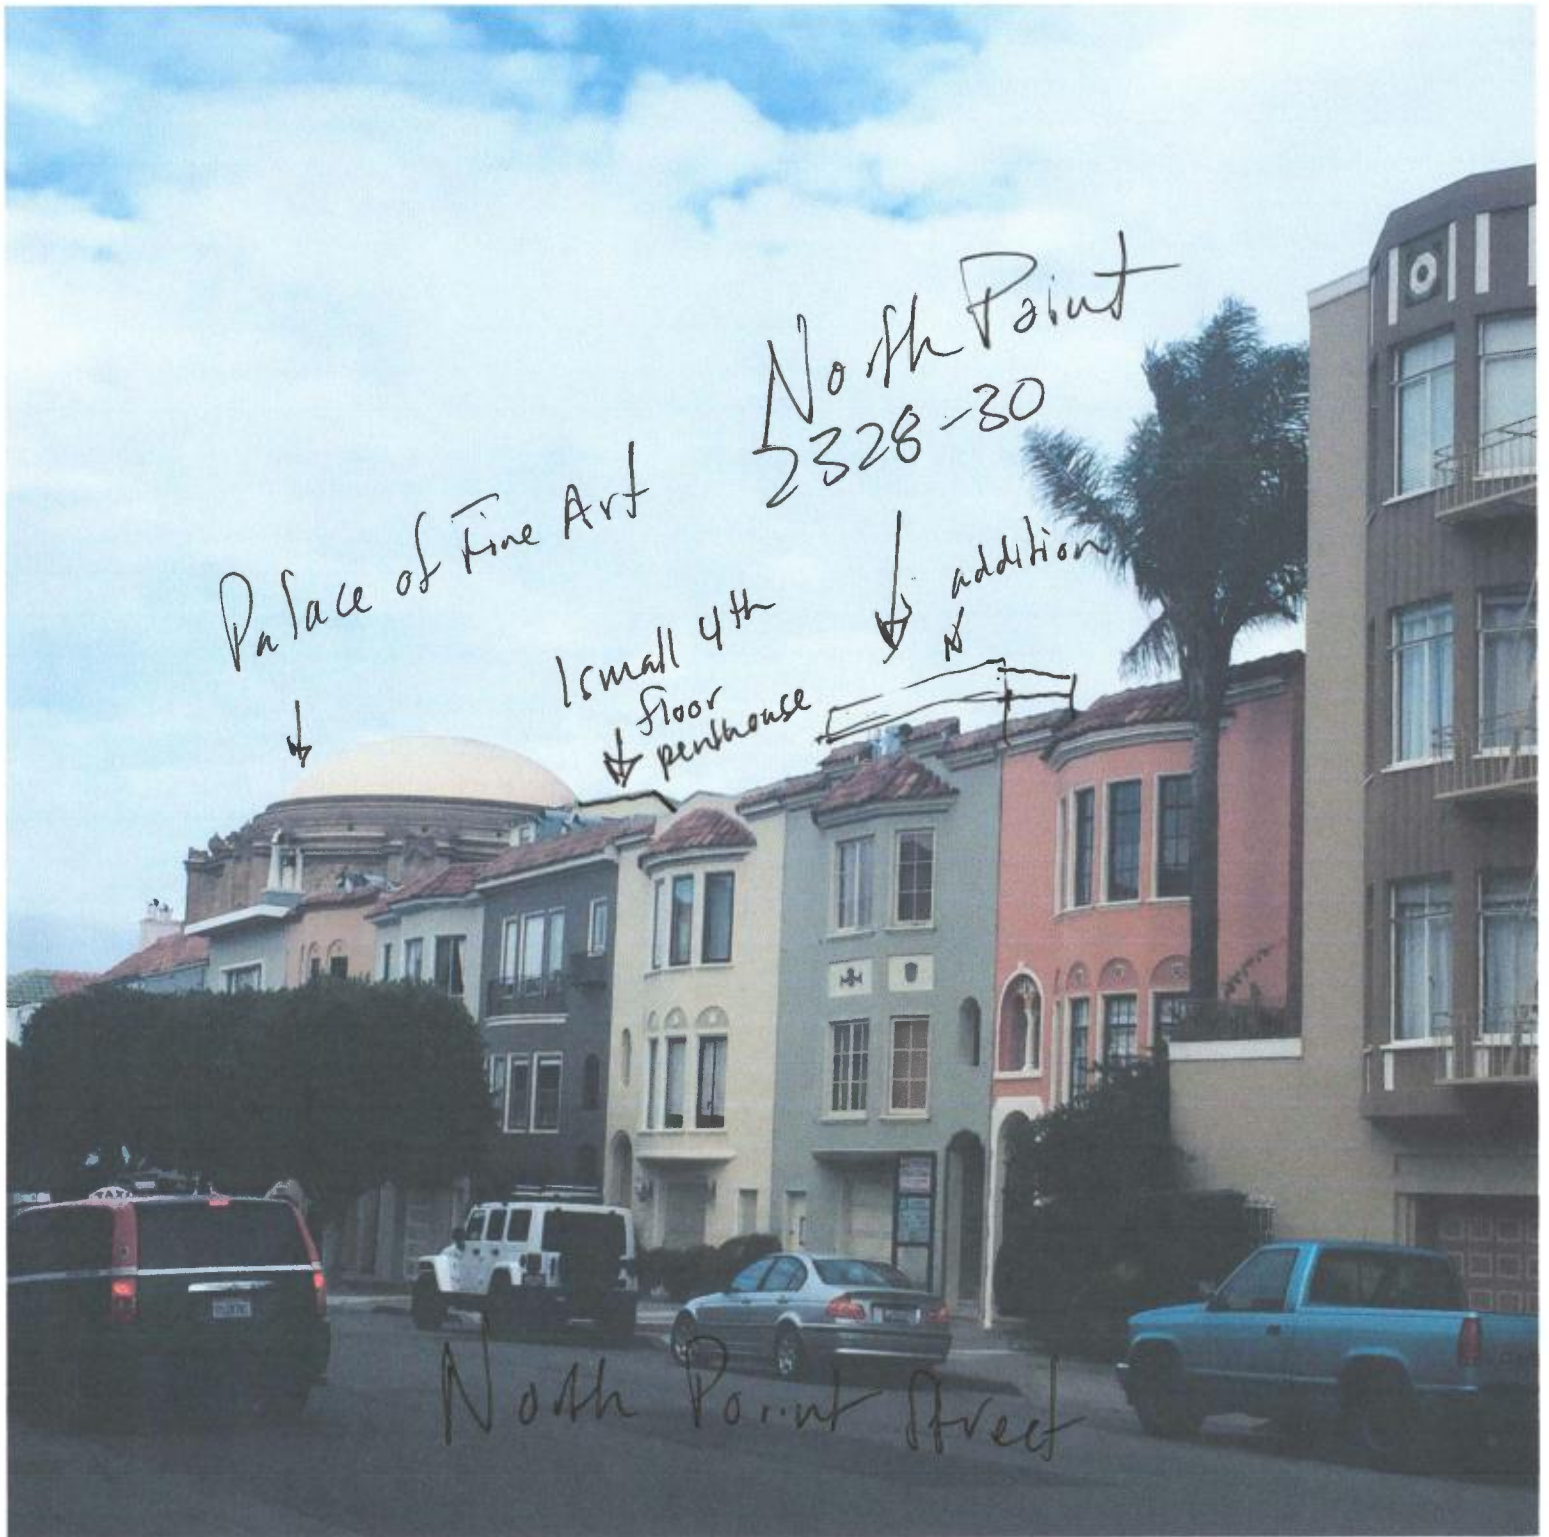 North Point
2328-30
Palace of Fine Art
addition
1 small 4th
floor
penthouse
TAXI
North Point Street